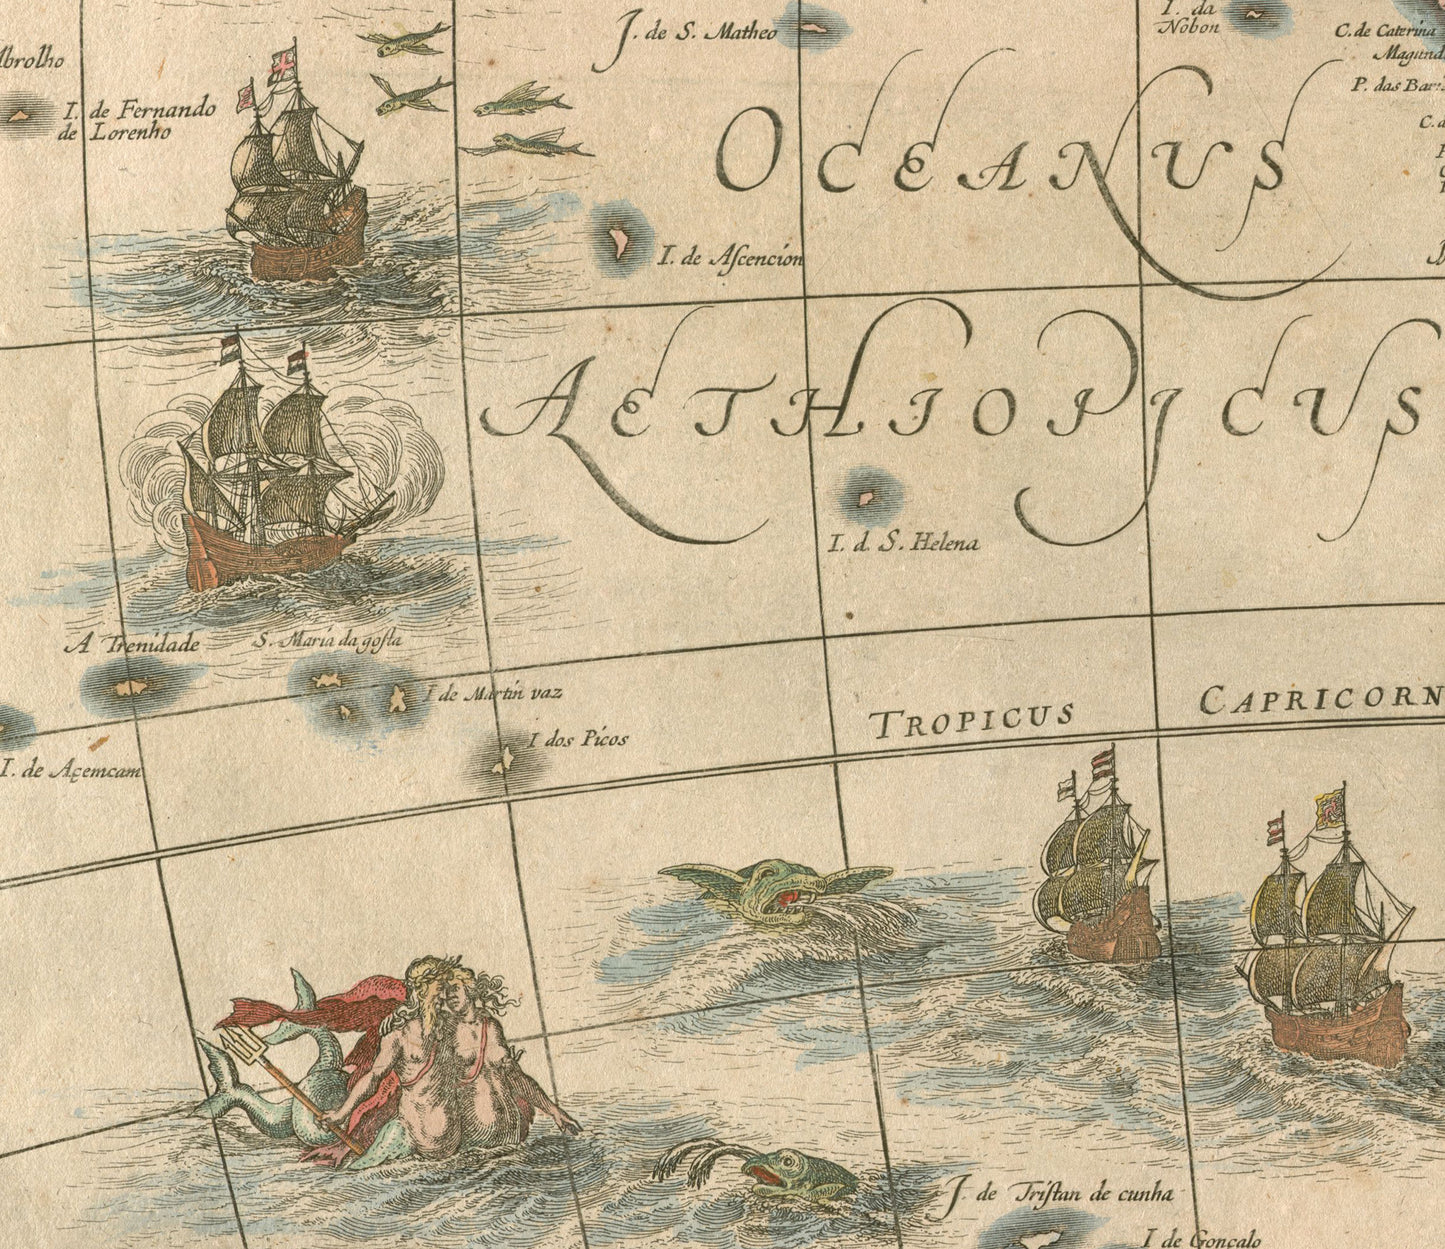 I. de S. Matheo
I. da
Nobon
C. de Caterina
Abrolho
P. das Bar
I. de Fernando
de Lorenho
OCEANUS
I. de Aſcencion
AETHIOPICUS
I. d. S. Helena
A Trenidade
S. Maria da goſta
I de Martin vaz
I dos Picos
TROPICUS
CAPRICORN
I. de Açemcam
I de Triſtan de cunha
I de Gonçalo